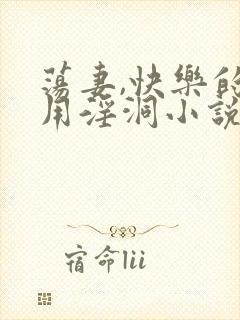 蕩妻,快樂的
用淫洞小說
宿命lii